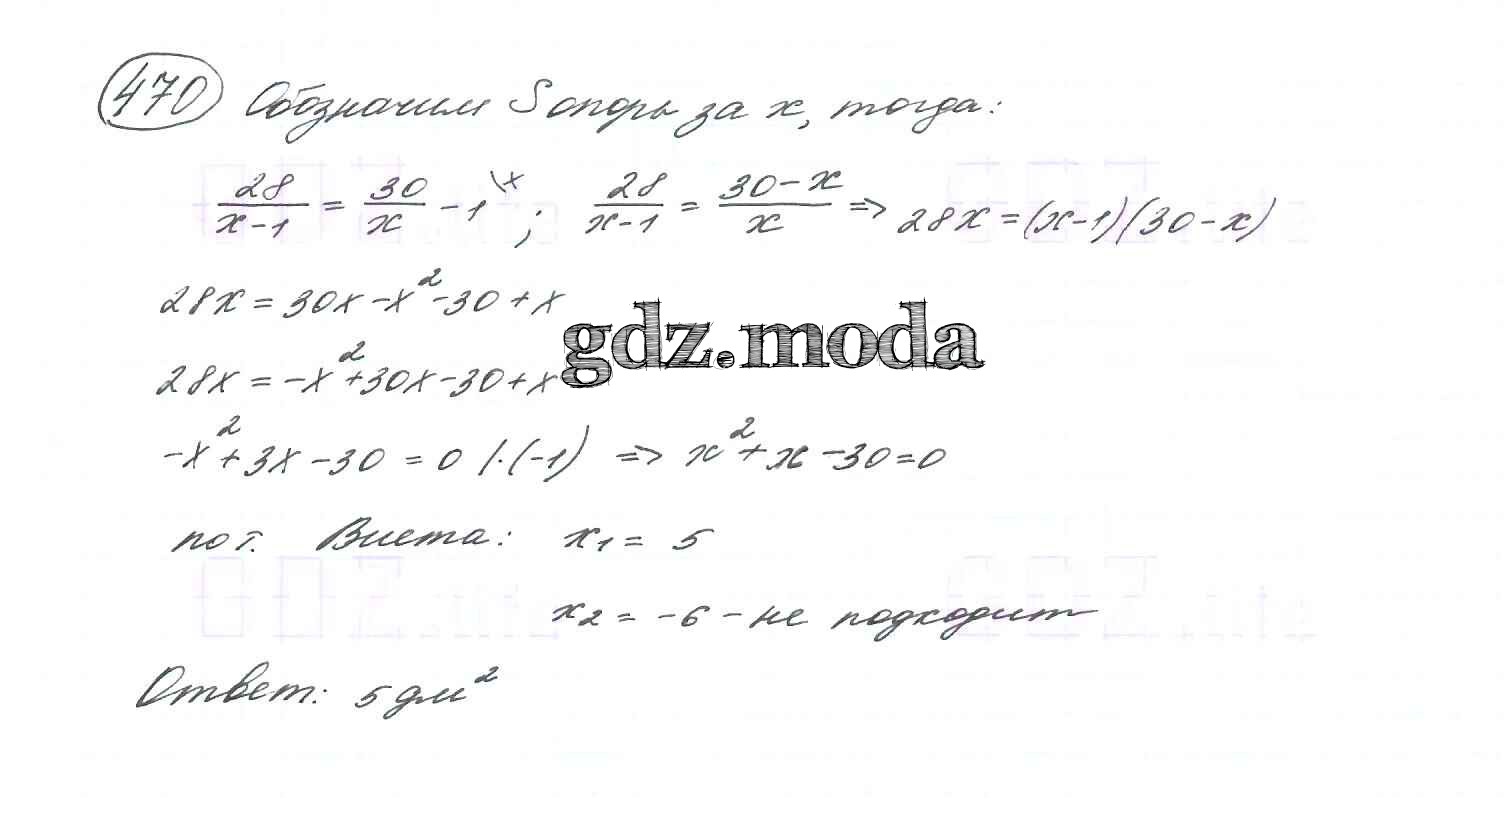 470 Обозначим S опоры за x, тогда:
28/(x-1) = 30/x - 1 \x ; 28/(x-1) = (30-x)/x => 28x = (x-1)(30-x)
28x = 30x - x² - 30 + x
gdz.moda
28x = -x² + 30x - 30 + x
-x² + 3x - 30 = 0 /·(-1) => x² + x - 30 = 0
по т. Виета: x₁ = 5
x₂ = -6 - не подходит
Ответ: 5 дм²